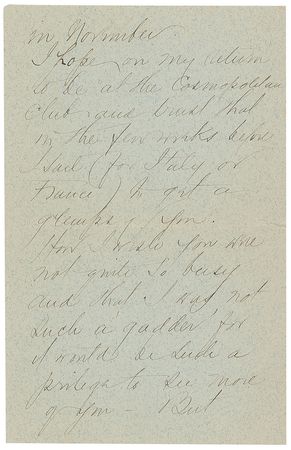 in November.
I hope on my return
to be at the Cosmopolitan
Club and trust that
in the few weeks before
I sail (for Italy or
France) to get a
glimpse of you.
How I wish you were
not quite so busy
and that I was not
such a 'gadder' for
it would be such a
privilege to see more
of you — But